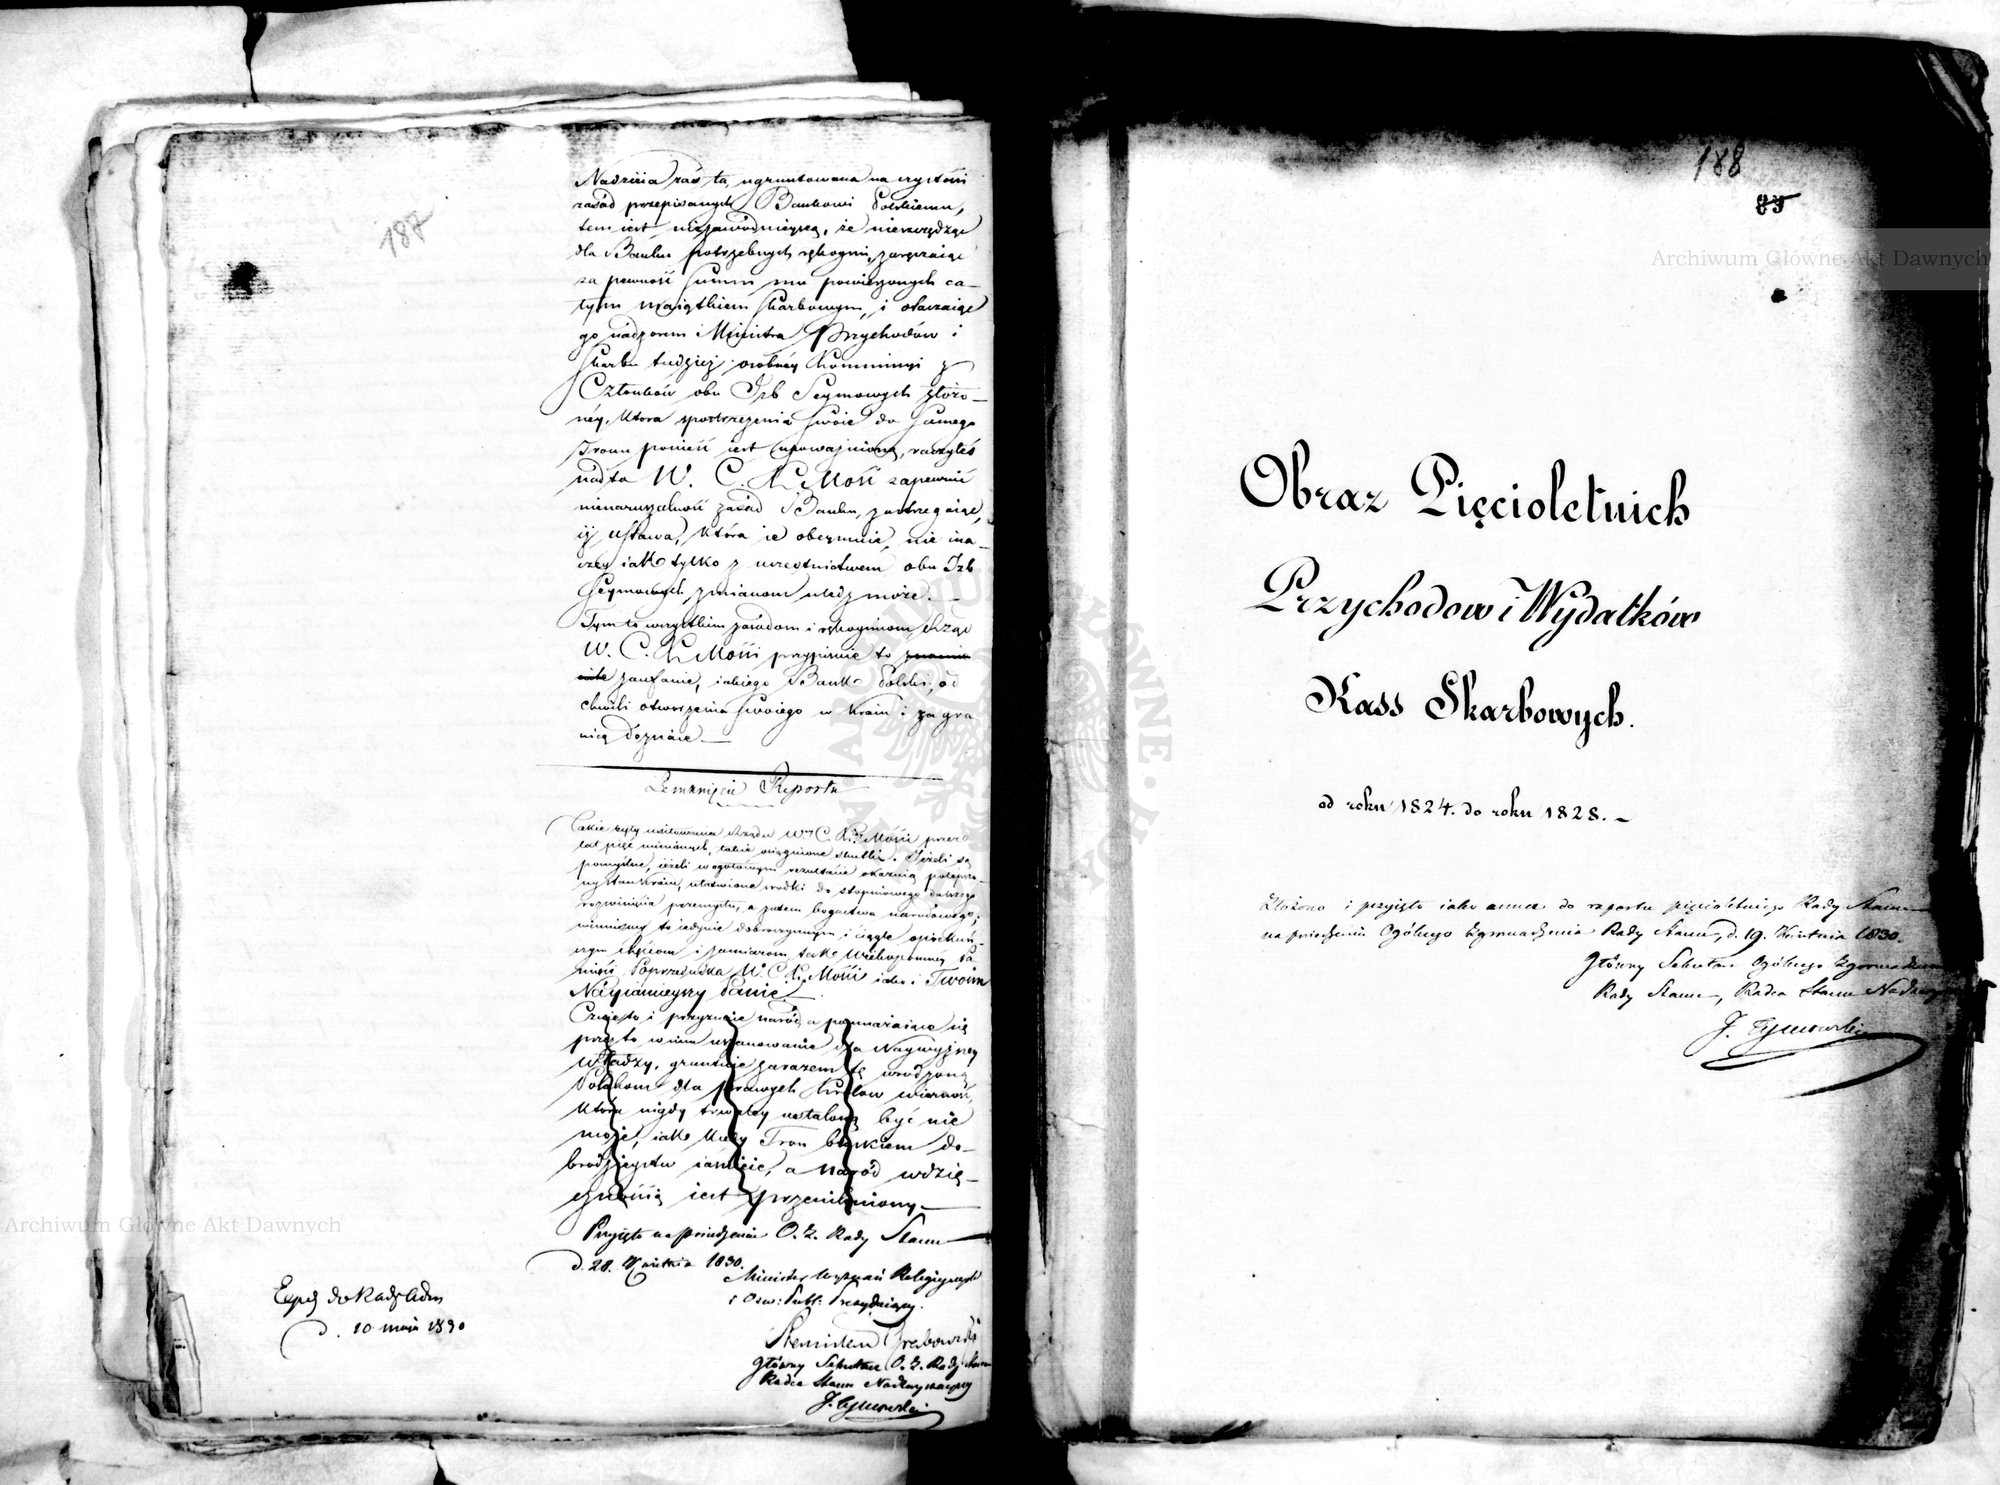 187
Nadzieia zaś ta, ugruntowana na czystości
zasad przepisanych Bankowi Polskiemu,
tem iest niezawodnieyszą, że nieszczędząc
dla Banku potrzebnych rękoymi, zaręczaiąc
za pewność summ mu powierzonych ca-
łym maiątkiem skarbowym, i otaczaiąc
go nadzorem i Ministra Przychodów i
Skarbu tudzież osobney Kommissyi z
Członków obu Izb Seymowych złożo-
néy, która spostrzeżenia swoie do samego
Tronu ponieść iest upoważnioną, raczyłeś
nadto W. C. K. Mość zapewnić
nienaruszalność zasad Banku, zastrzegaiąc,
iż ustawa, która ie obeymuie, nie ina-
czey iak tylko z uczestnictwem obu Izb
Seymowych zmianom uledz może. —
Tym to wszystkim zasadom i rękoymiom chcąc
W. C. K. Mości przypisuie to znamie-
nite zaufanie, iakiego Bank Polski, od
chwili otworzenia swoiego w Kraiu i za gra
nicą doznaie. —
Zamknięcie Raportu
Takie były usiłowania Rządu W. C. K. Mości przez
lat pięć minionych, takie osiągnione skutki. Ieżeli są
pomyślne, ieżeli w ogólowym rezultacie okazuią polepszo-
ny stan kraiu, ułatwione srodki do stopniowego dalszego
rozwinięcia przemysłu, a zatem bogactwa narodowego;
winniśmy to iedynie dobroczynnym i ciągle opiekuń-
czym chęciom i zamiarom tak Wiekopomney Pa
mięci Poprzednika W. C. K. Mości iako i Twoim
Nayiaśnieyszy Panie.
Czuie to i przyznaie naród, a pomnażaiące się
przez to w nim uszanowanie dla Naywyższey
Władzy, gruntuie zarazem tę wrodzoną
Polakom dla prawych Królów wierność,
która nigdy trwaley ustaloną być nie
może, iak kiedy Tron blaskiem do-
brodzieystw iaśnieie, a naród wdzię-
cznością iest przenikniony. —
Przyięto na posiedzeniu O. Z. Rady Stanu
d. 28. Kwietnia 1830.
Minister Wyznań Religiynych
i Ośw: Publ: Prezyduiący.
Stanisław Grabowski
Główny Sekretarz O. Z. Rady Stanu
Radca Stanu Nadzwyczayny
J. Tymowski
Exp do Rady Adm
d. 10 maja 1830
188
83
Obraz Pięcioletnich
Przychodow i Wydatków
Kass Skarbowych.
od roku 1824. do roku 1828. —
Złożono i przyięto iako annex do raportu pięcioletniego Rady Stanu
na posiedzeniu Ogólnego Zgromadzenia Rady Stanu, d. 19. Kwietnia 1830.
Główny Sekretarz Ogólnego Zgromadzenia
Rady Stanu, Radca Stanu Nadzwyczayny
J. Tymowski
Archiwum Główne Akt Dawnych
Archiwum Główne Akt Dawnych